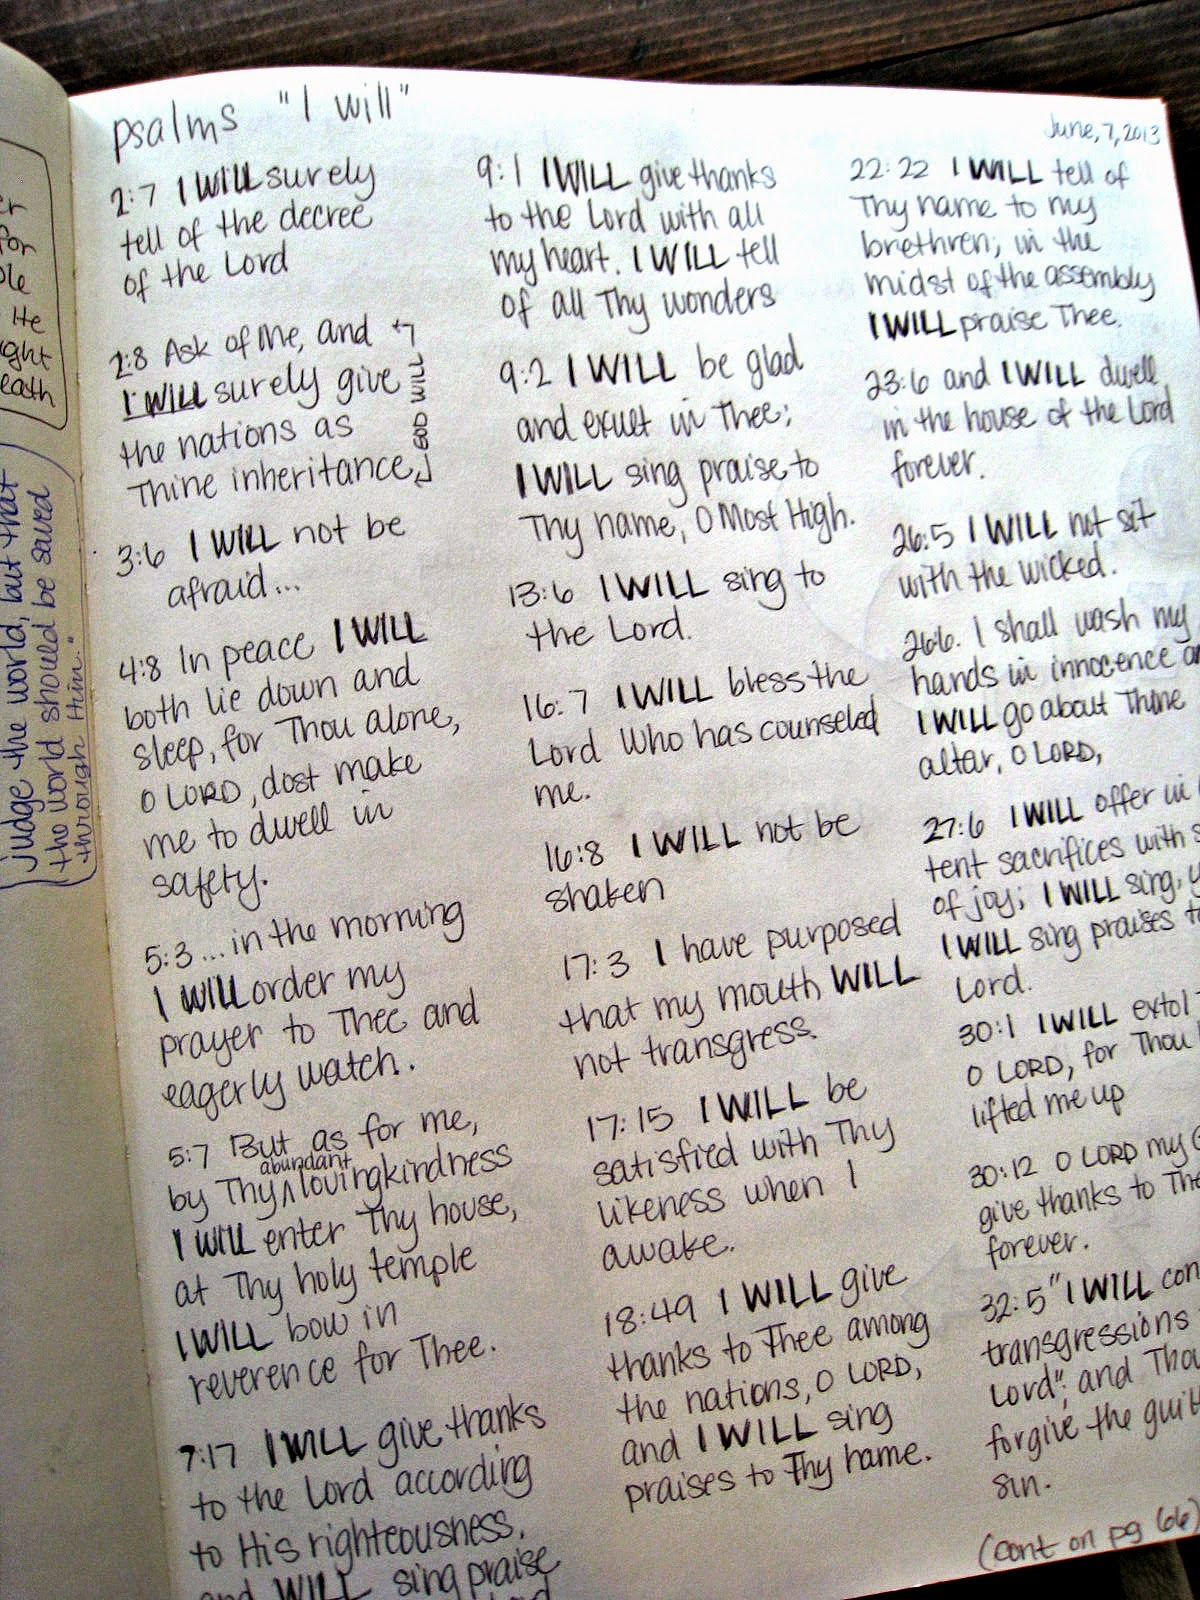 er
for
He
ight
eath
judge the world, but that
the world should be saved
through Him."
psalms "I will"
June, 7, 2013
2:7 I WILL surely
tell of the decree
of the Lord
2:8 Ask of Me, and
I WILL surely give
the nations as
Thine inheritance,
GOD WILL
3:6 I WILL not be
afraid...
4:8 In peace I WILL
both lie down and
sleep, for Thou alone,
O LORD, dost make
me to dwell in
safety.
5:3 ... in the morning
I WILL order my
prayer to Thee and
eagerly watch.
5:7 But as for me,
by Thy abundant lovingkindness
I WILL enter Thy house,
at Thy holy temple
I WILL bow in
reverence for Thee.
7:17 I WILL give thanks
to the Lord according
to His righteousness,
and WILL sing praise
9:1 I WILL give thanks
to the Lord with all
my heart. I WILL tell
of all Thy wonders
9:2 I WILL be glad
and exult in Thee;
I WILL sing praise to
Thy name, O Most High.
13:6 I WILL sing to
the Lord.
16:7 I WILL bless the
Lord Who has counseled
me.
16:8 I WILL not be
shaken
17:3 I have purposed
that my mouth WILL
not transgress.
17:15 I WILL be
satisfied with Thy
likeness when I
awake.
18:49 I WILL give
thanks to Thee among
the nations, O LORD,
and I WILL sing
praises to Thy name.
22:22 I WILL tell of
Thy name to my
brethren; in the
midst of the assembly
I WILL praise Thee.
23:6 and I WILL dwell
in the house of the Lord
forever.
26:5 I WILL not sit
with the wicked.
26:6. I shall wash my
hands in innocence
I WILL go about Thine
altar, O LORD,
27:6 I WILL offer in
tent sacrifices with
of joy; I WILL sing,
I WILL sing praises
Lord.
30:1 I WILL extol
O LORD, for Thou
lifted me up
30:12 O LORD my
give thanks to
forever.
32:5 "I WILL con
transgressions
Lord"; and
forgive the
sin.
(cont on pg 66)